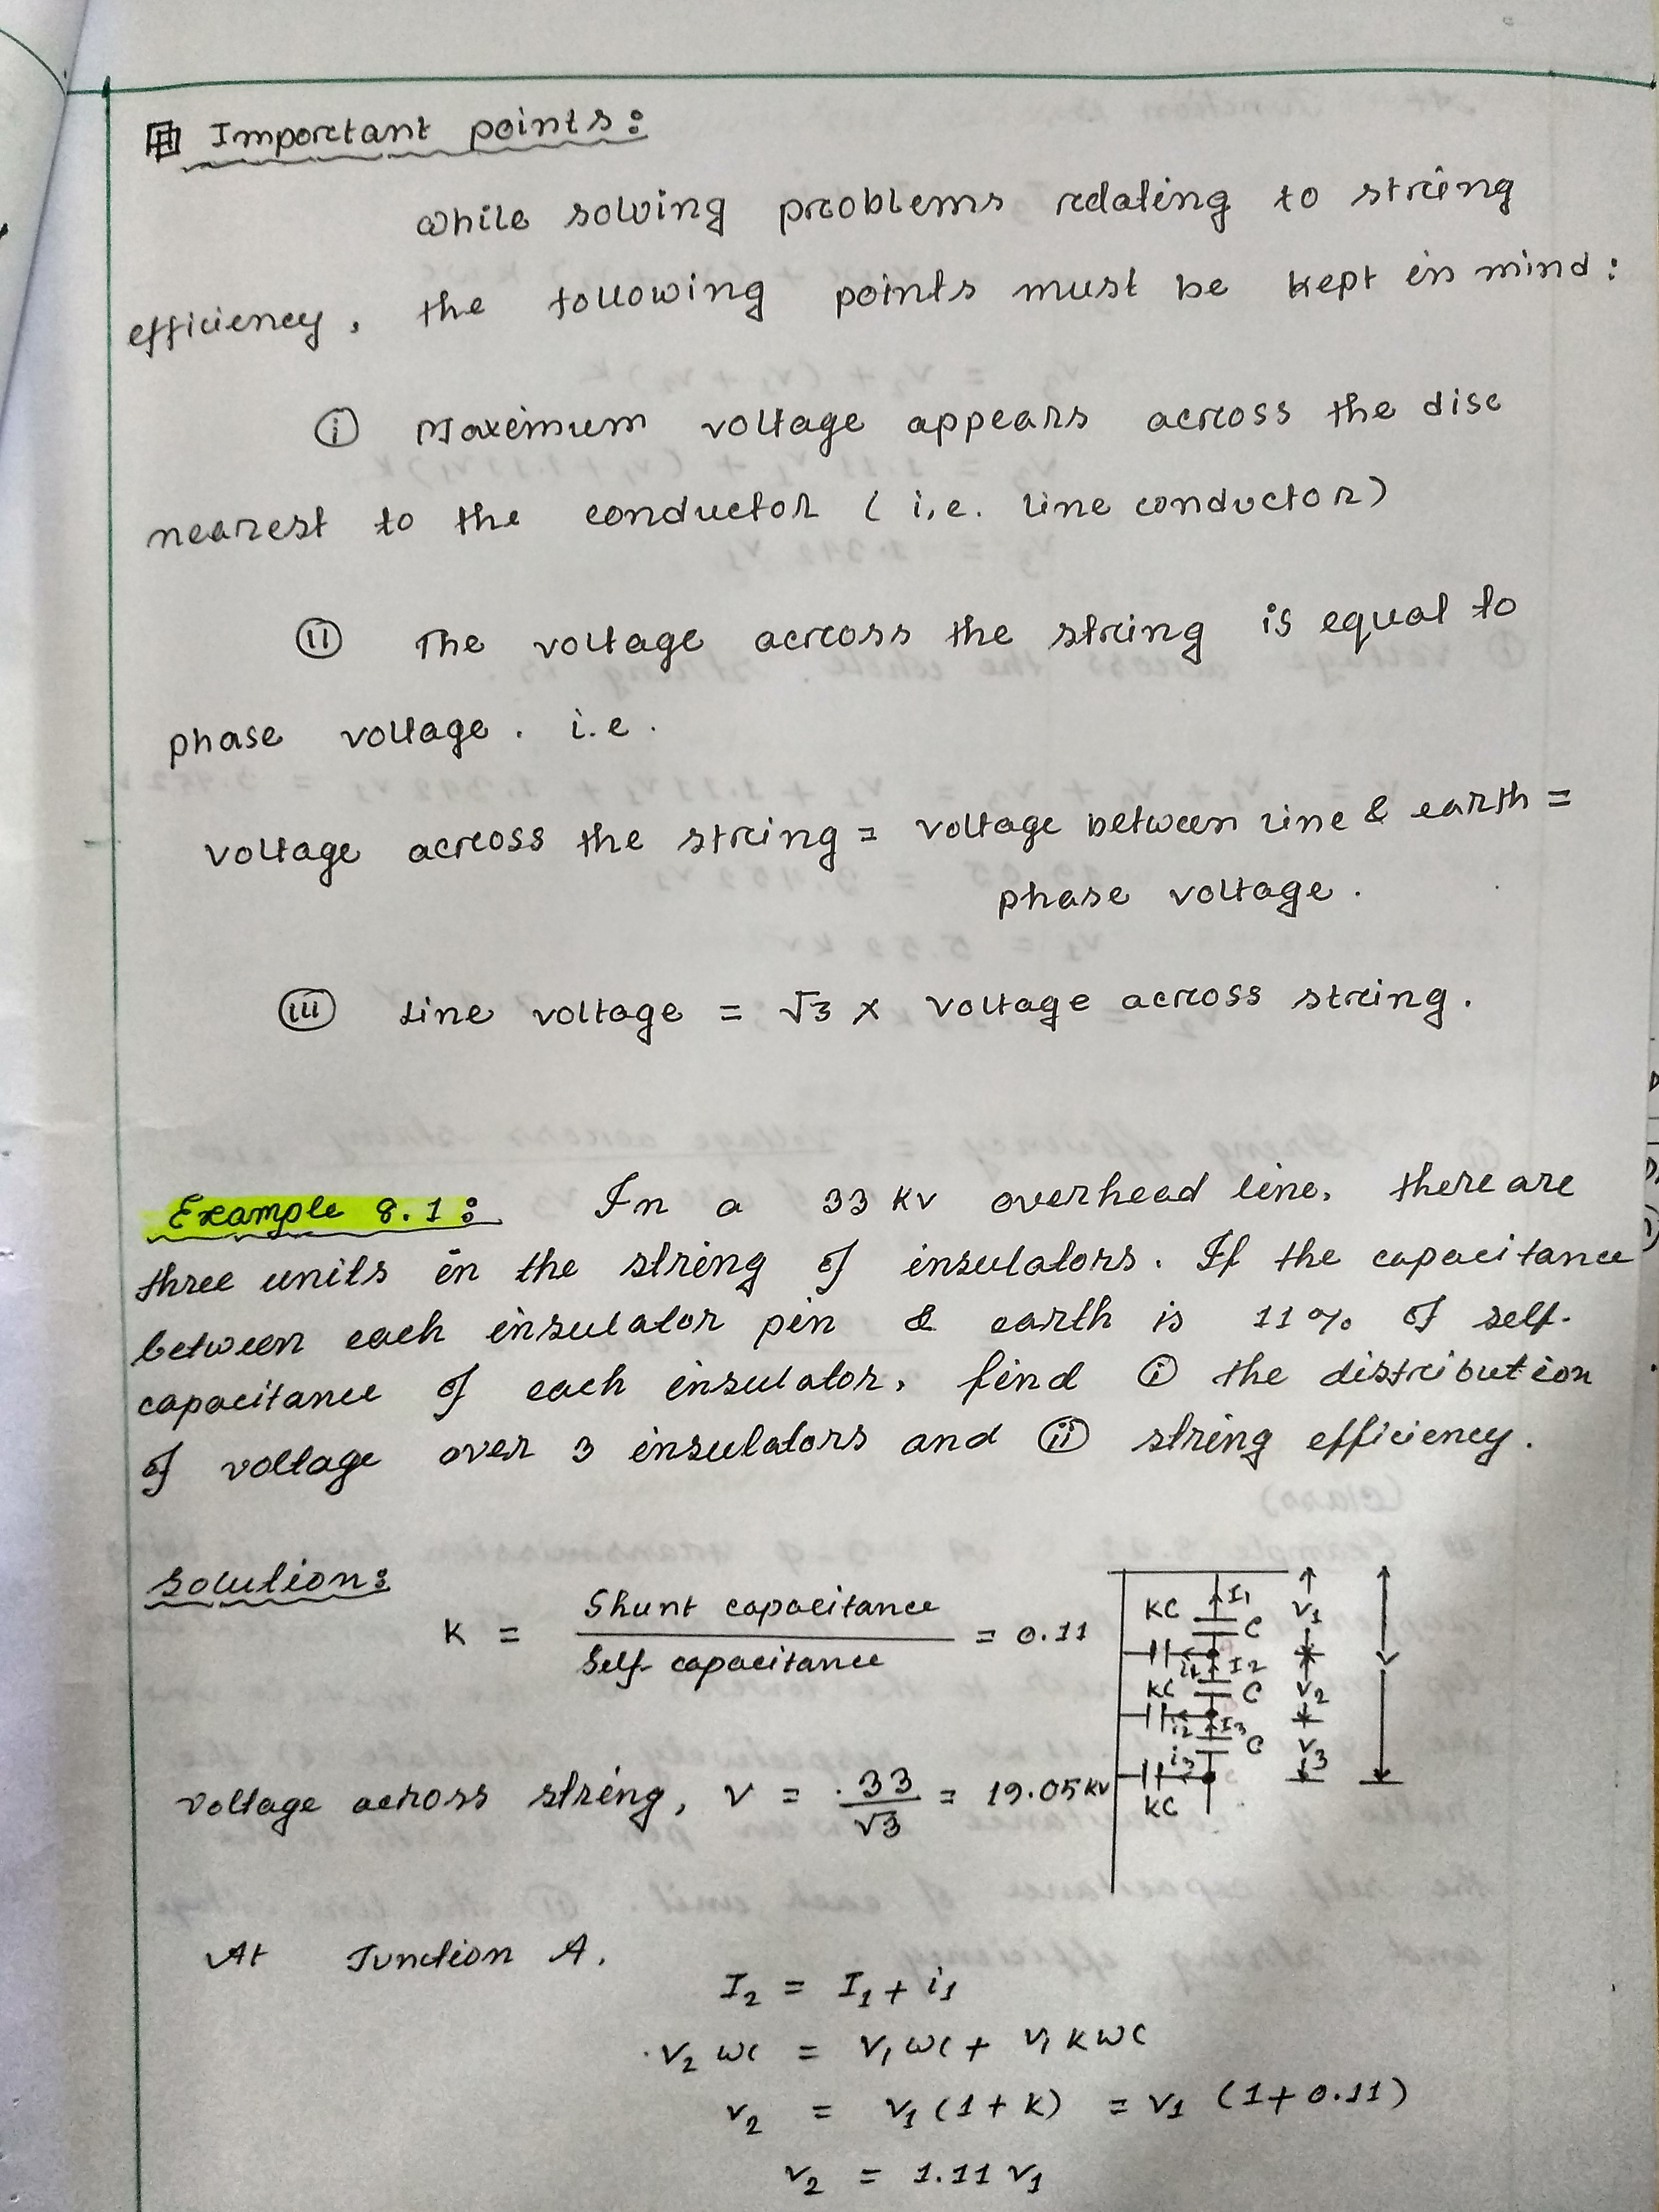 Important points:
While solving problems relating to string
efficiency, the following points must be kept in mind:
(i) Maximum voltage appears across the disc
nearest to the conductor (i.e. line conductor)
(ii) The voltage across the string is equal to
phase voltage. i.e.
voltage across the string = voltage between line & earth =
phase voltage.
(iii) Line voltage = √3 × voltage across string.
Example 8.1: In a 33 KV overhead line, there are
three units in the string of insulators. If the capacitance
between each insulator pin & earth is 11% of self-
capacitance of each insulator, find (i) the distribution
of voltage over 3 insulators and (ii) string efficiency.
Solution:
K = Shunt capacitance / Self capacitance = 0.11
KC I1 C V1
i1 I2
KC C V2 V
i2 I3 C
i3 V3
KC
Voltage across string, V = 33/√3 = 19.05 KV
At Junction A,
I2 = I1 + i1
V2 ωC = V1 ωC + V1 KωC
V2 = V1 (1 + K) = V1 (1 + 0.11)
V2 = 1.11 V1